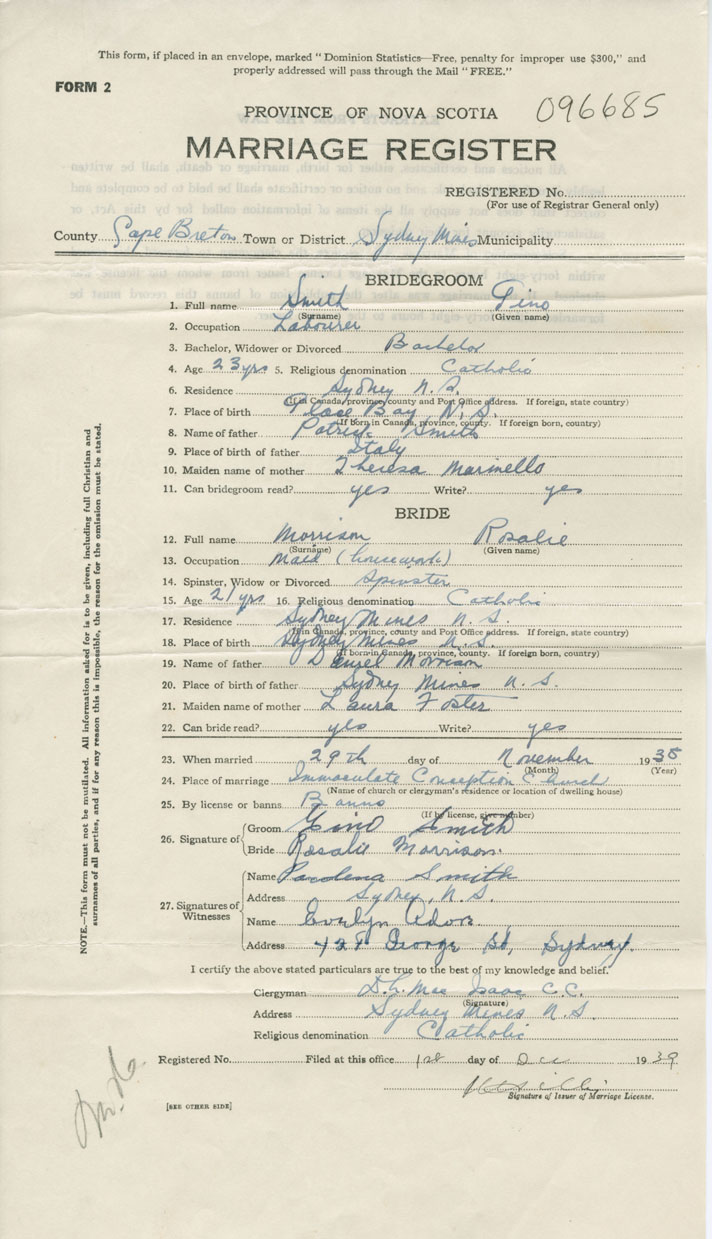 This form, if placed in an envelope, marked "Dominion Statistics—Free, penalty for improper use $300," and
properly addressed will pass through the Mail "FREE."
FORM 2
PROVINCE OF NOVA SCOTIA 096685
MARRIAGE REGISTER
REGISTERED No.
(For use of Registrar General only)
County Cape Breton Town or District Sydney Mines Municipality
BRIDEGROOM
1. Full name Smith Gino
(Surname) (Given name)
2. Occupation Labourer
3. Bachelor, Widower or Divorced Bachelor
4. Age 23 yrs 5. Religious denomination Catholic
6. Residence Sydney N.S.
(If in Canada, province, county and Post Office address. If foreign, state country)
7. Place of birth Glace Bay N.S.
(If born in Canada, province, county. If foreign born, country)
8. Name of father Patrick Smith
9. Place of birth of father Italy
10. Maiden name of mother Theresa Marinello
11. Can bridegroom read? yes Write? yes
BRIDE
12. Full name Morrison Rosalie
(Surname) (Given name)
13. Occupation Maid (housework)
14. Spinster, Widow or Divorced Spinster
15. Age 21 yrs 16. Religious denomination Catholic
17. Residence Sydney Mines N.S.
(If in Canada, province, county and Post Office address. If foreign, state country)
18. Place of birth Sydney Mines N.S.
(If born in Canada, province, county. If foreign born, country)
19. Name of father Daniel Morrison
20. Place of birth of father Sydney Mines N.S.
21. Maiden name of mother Laura Foster
22. Can bride read? yes Write? yes
23. When married 29th day of November 19
(Month) (Year)
24. Place of marriage Immaculate Conception Church
(Name of church or clergyman's residence or location of dwelling house)
25. By license or banns Banns
(If by license, give number)
26. Signature of
Groom Gino Smith
Bride Rosalie Morrison.
27. Signatures of Witnesses
Name Smith
Address Sydney, N.S.
Name Evelyn
Address George St, Sydney.
I certify the above stated particulars are true to the best of my knowledge and belief.
Clergyman Mac Isaac C.C.
(Signature)
Address Sydney Mines N.S.
Religious denomination Catholic
Registered No. Filed at this office 1st day of Dec 1939
Signature of Issuer of Marriage License.
[SEE OTHER SIDE]
NOTE.—This form must not be mutilated. All information asked for is to be given, including full Christian and
surnames of all parties, and if for any reason this is impossible, the reason for the omission must be stated.